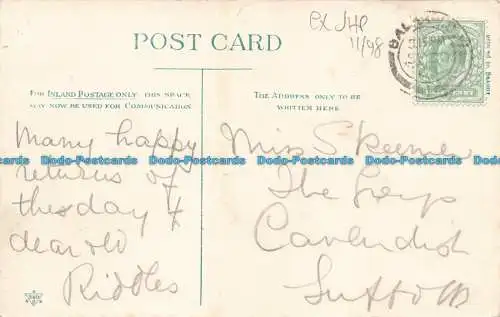 ex JHP
11/98
POST CARD
FOR INLAND POSTAGE ONLY THIS SPACE
MAY NOW BE USED FOR COMMUNICATION.
THE ADDRESS ONLY TO BE
WRITTEN HERE.
Many happy
returns of
the day &
dear old
Riddles
Miss S Keemer
The Greys
Cavendish
Suffolk
Dodo-Postcards Dodo-Postcards Dodo-Postcards Dodo-Postcards Dodo-Postcards